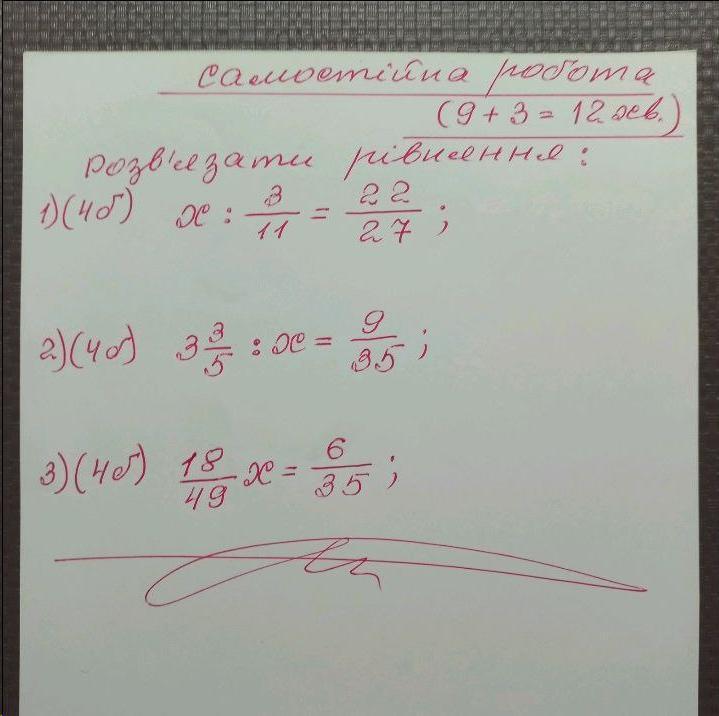 Самостійна робота
(9 + 3 = 12 хв.)
Розв'язати рівняння:
1) (4б) x : 3/11 = 22/27 ;
2) (4б) 3 3/5 : x = 9/35 ;
3) (4б) 18/49 x = 6/35 ;